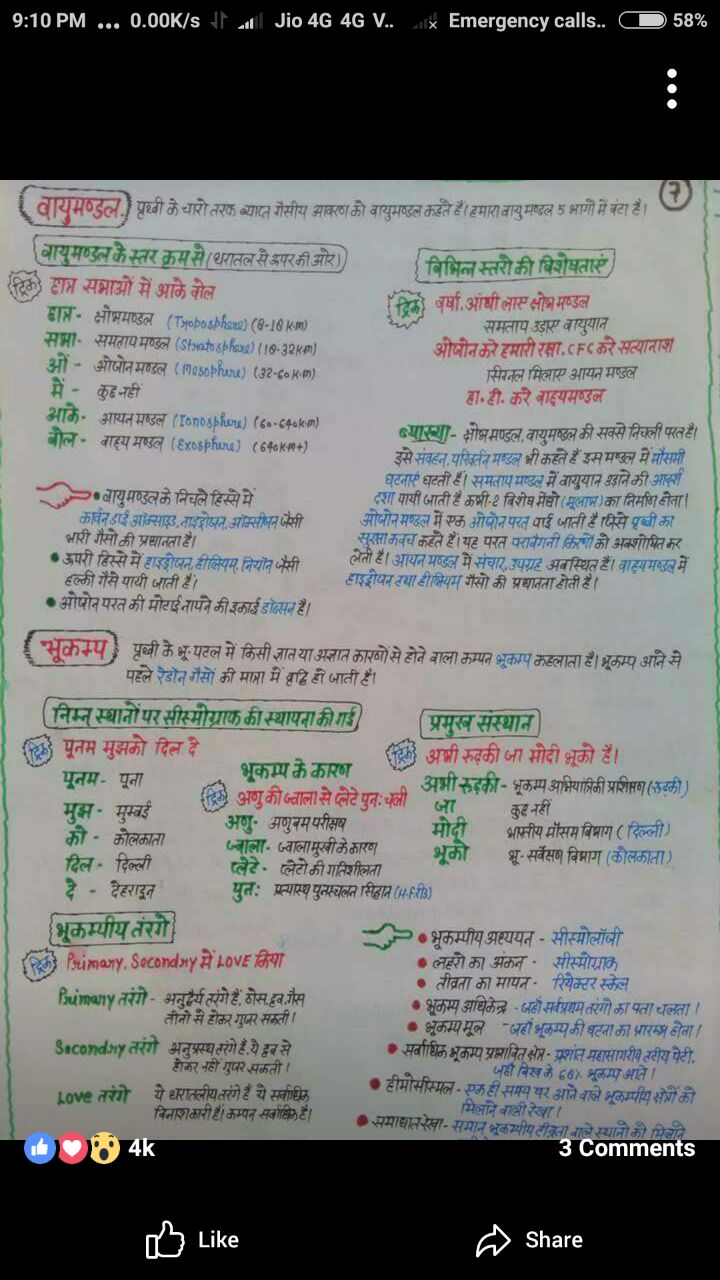 9:10 PM ... 0.00K/s Jio 4G 4G V.. Emergency calls.. 58%
7
वायुमण्डल. पृथ्वी के चारो तरफ व्याप्त गैसीय आवरण को वायुमण्डल कहते है। हमारा वायु मण्डल 5 भागो में बंटा है।
वायुमण्डल के स्तर क्रम से (धरातल से ऊपर की ओर)
ट्रिक हान्न सभाओं में आके बोल
क्षोभमण्डल (Troposphere) (8-18km)
सभा- समताप मण्डल (Stratosphere) (18-32km)
ओं - ओजोन मण्डल (Mesophere) (32-60km)
में - कुछ नहीं
आके- आयन मण्डल (Ionosphere) (60-640km)
बोल- वाह्य मण्डल (Exosphere) (640km+)
वायुमण्डल के निचले हिस्से में
कार्बन डाई ऑक्साइड, नाइट्रोजन, ऑक्सीजन जैसी
भारी गैसो की प्रधानता है।
ऊपरी हिस्से में हाइड्रोजन, हीलियम, नियॉन जैसी
हल्की गैसे पायी जाती है।
ओजोन परत की मोटाई नापने की इकाई डॉब्सन है।
विभिन्न स्तरो की विशेषताएं
ट्रिक वर्षा. आंधी लाए क्षोभ मण्डल
समताप उड़ाए वायुयान
ओजोन करे हमारी रक्षा. CFC करे सत्यानाश
सिग्नल मिलाए आयन मण्डल
हा. ही. करे वाह्यमण्डल
व्याख्या- क्षोभमण्डल, वायुमण्डल की सबसे निचली परत है।
इसे संवहन, परिवर्तन मण्डल भी कहते हैं इस मण्डल में मौसमी
घटनाएं घटती हैं। समताप मण्डल में वायुयान उड़ाने की आदर्श
दशा पायी जाती है कभी-2 विशेष मेघो (मूलाभ) का निर्माण होता।
ओजोन मण्डल में एक ओजोन परत पाई जाती है जिसे पृथ्वी का
सुरक्षा कवच कहते हैं। यह परत पराबैगनी किरणों को अवशोषित कर
लेती है। आयन मण्डल में संचार उपग्रह अवस्थित हैं। वाह्यमण्डल में
हाइड्रोजन तथा हीलियम गैसो की प्रधानता होती है।
भूकम्प पृथ्वी के भू-पटल में किसी ज्ञात या अज्ञात कारणो से होने वाला कम्पन भूकम्प कहलाता है। भूकम्प आने से
पहले रेडोन गैसों की मात्रा में वृद्धि हो जाती है।
निम्न स्थानों पर सीस्मोग्राफ की स्थापना की गई
ट्रिक पूनम मुझको दिल दे
पूनम- पूना
मुझ- मुम्बई
को - कोलकाता
दिल- दिल्ली
दे - देहरादून
भूकम्प के कारण
ट्रिक अणु की ज्वाला से प्लेटे पुन: चली
अणु- अणुबम परीक्षण
ज्वाला- ज्वालामुखी के कारण
प्लेटे- प्लेटो की गतिशीलता
पुन: प्रत्यास्थ पुनश्चलन सिद्धांत
प्रमुख संस्थान
ट्रिक अभी रूड़की जा मोदी भूको है।
अभी रूड़की- भूकम्प अभियांत्रिकी प्रशिक्षण (रूड़की)
जा कुछ नहीं
मोदी भारतीय मौसम विभाग (दिल्ली)
भूको भू-सर्वेक्षण विभाग (कोलकाता)
भूकम्पीय तरंगे
ट्रिक Primary. Secondry में LOVE किया
Primary तरंगे- अनुदैर्ध्य तरंगे हैं, ठोस, द्रव, गैस
तीनो से होकर गुजर सकती।
Secondry तरंगे अनुप्रस्थ तरंगे है. ये द्रव से
होकर नहीं गुजर सकती।
Love तरंगे ये धरातलीय तरंगे है ये सर्वाधिक
विनाशकारी है। कम्पन सर्वाधिक है।
भूकम्पीय अध्ययन - सीस्मोलॉजी
लहरो का अंकन - सीस्मोग्राफ
तीव्रता का मापन - रियेक्टर स्केल
भूकम्प अधिकेन्द्र - जहाँ सर्वप्रथम तरंगो का पता चलता।
भूकम्प मूल - जहाँ भूकम्प की घटना का प्रारम्भ होता।
सर्वाधिक भूकम्प प्रभावित क्षेत्र- प्रशांत महासागरीय तटीय पेटी.
जहाँ विश्व के 68% भूकम्प आते।
होमोसीस्मल - एक ही समय पर आने वाले भूकम्पीय क्षेत्रों को
मिलाने वाली रेखा।
समाघात रेखा- समान भूकम्पीय तीव्रता वाले स्थानों को मिलाने
4k 3 Comments
Like Share